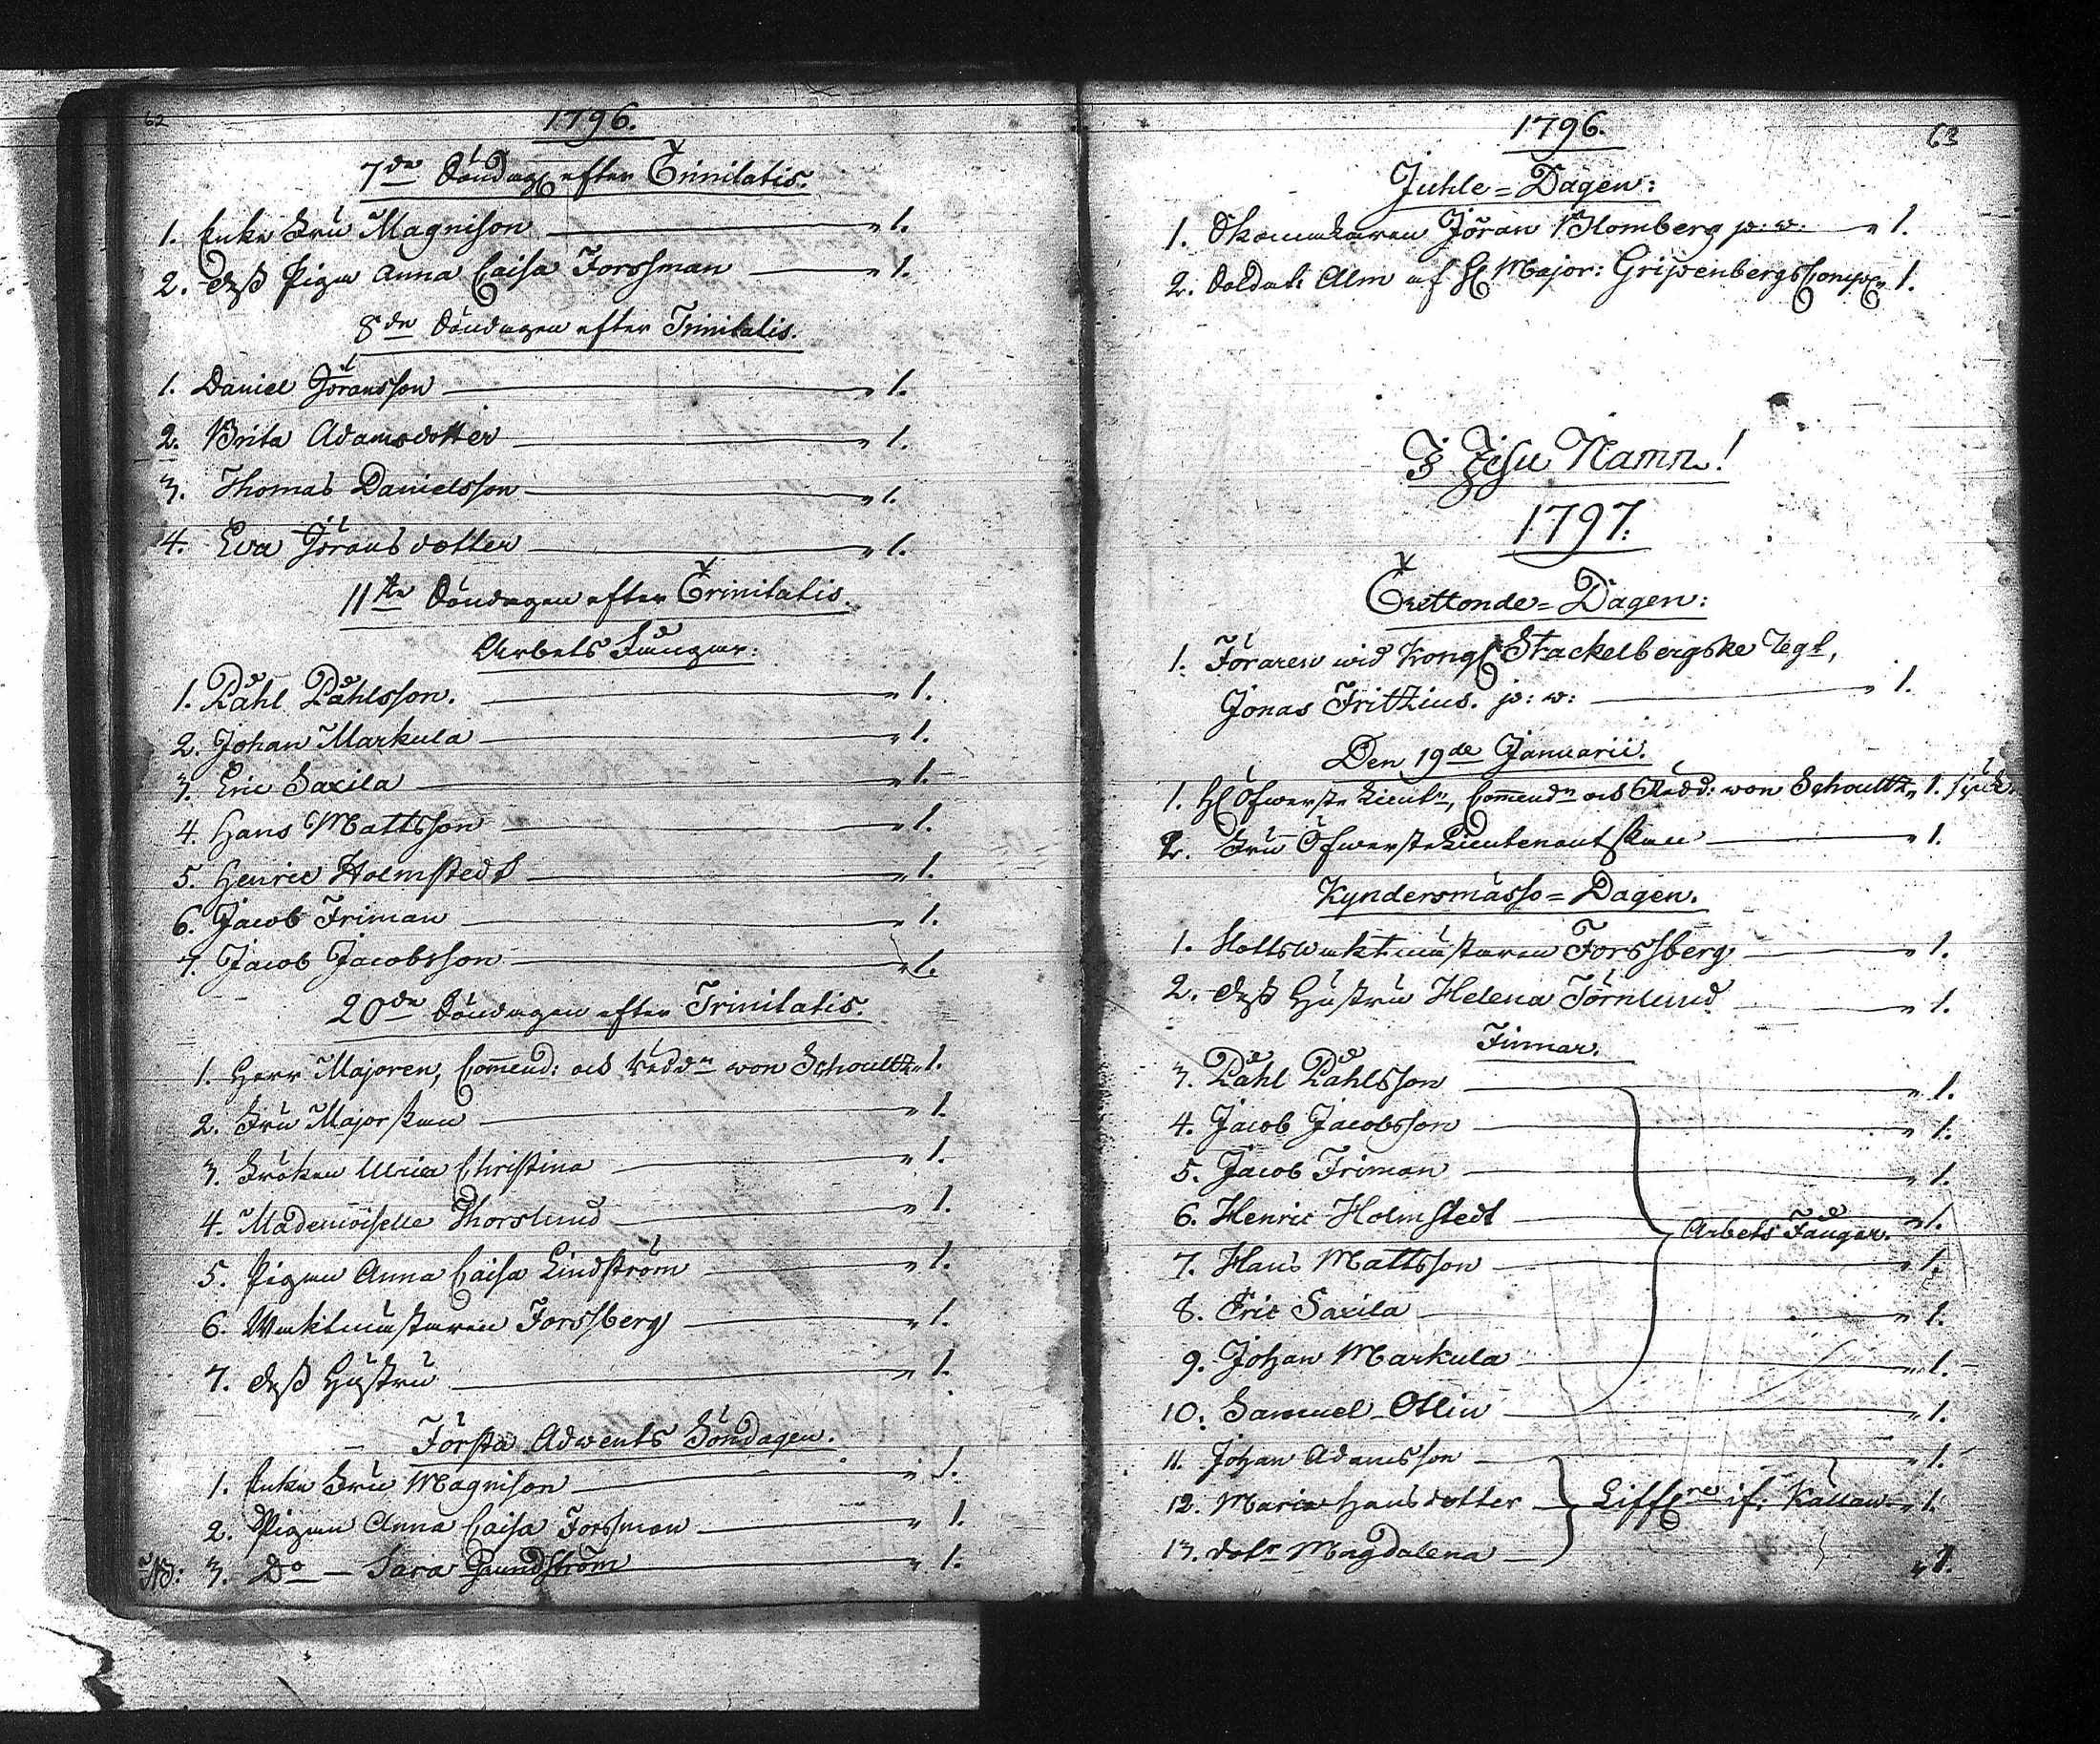 62
1796.
7de Söndag efter Trinitatis.
1. Enke Fru Magnison — " 1.
2. Dess Pigan Anna Caisa Forssman — " 1.
8de Söndagen efter Trinitatis.
1. Daniel Jöransson — " 1.
2. Brita Adamsdotter — " 1.
3. Thomas Danielsson — " 1.
4. Eva Jöransdotter — " 1.
11te Söndagen efter Trinitatis.
Arbets Fångar:
1. Påhl Påhlsson. — " 1.
2. Johan Markula — " 1.
3. Eric Saxila — " 1.
4. Hans Mattsson — " 1.
5. Henric Holmstedt — " 1.
6. Jacob Friman — " 1.
7. Jacob Jacobsson — " 1.
20de Söndagen efter Trinitatis.
1. Herr Majoren, Commend: och Riddn von Schoultz " 1.
2. Fru Majorskan — " 1.
3. Fröken Ulrica Christina — " 1.
4. Mademoiselle Thorslund — " 1.
5. Pigan Anna Caisa Lindström — " 1.
6. Waktmästaren Forssberg — " 1.
7. Dess Hustru — " 1.
Första Adwents Söndagen.
1. Enke Fru Magnison — " 1.
2. Pigan Anna Caisa Forssman — " 1.
3. Do — Sara Grundström — " 1.
1796.
63
Juhle-Dagen:
1. Skomakaren Jöran Blomberg p: v: — " 1.
2. Soldat: Alm af H Major: Gripenbergs Comp " 1.
I Jesu Namn!
1797.
Trettonde-Dagen:
1. Föraren wid Kongl Stackelbergske Regt,
Jonas Fritzius. p: v: — " 1.
Den 19de Januarii.
1. H Öfwerste Lieutn, Commendn och Ridd: von Schoultz " 1. sjuk.
2. Fru Öfwerste Lieutenantskan — " 1.
Kyndersmässo-Dagen.
1. Slottswaktmästaren Forssberg — " 1.
2. Dess Hustru Helena Törnlund — " 1.
Finnar.
3. Påhl Påhlsson — " 1.
4. Jacob Jacobsson — " 1.
5. Jacob Friman — " 1.
6. Henric Holmstedt — " 1.
Arbets Fångar.
7. Hans Mattsson — " 1.
8. Eric Saxila — " 1.
9. Johan Markula — " 1.
10. Samuel Ollin — " 1.
11. Johan Adamsson — " 1.
12. Maria Hansdotter — " 1.
13. dotr Magdalena — " 1.